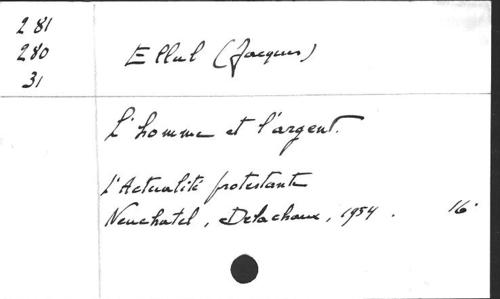 281
280
31
Ellul (Jacques)
L'homme et l'argent.
L'Actualité protestante
Neuchatel, Delachaux, 1954. 16°